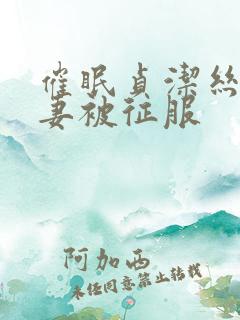 催眠貞潔絲
妻被征服
阿加西
未经同意禁止转载